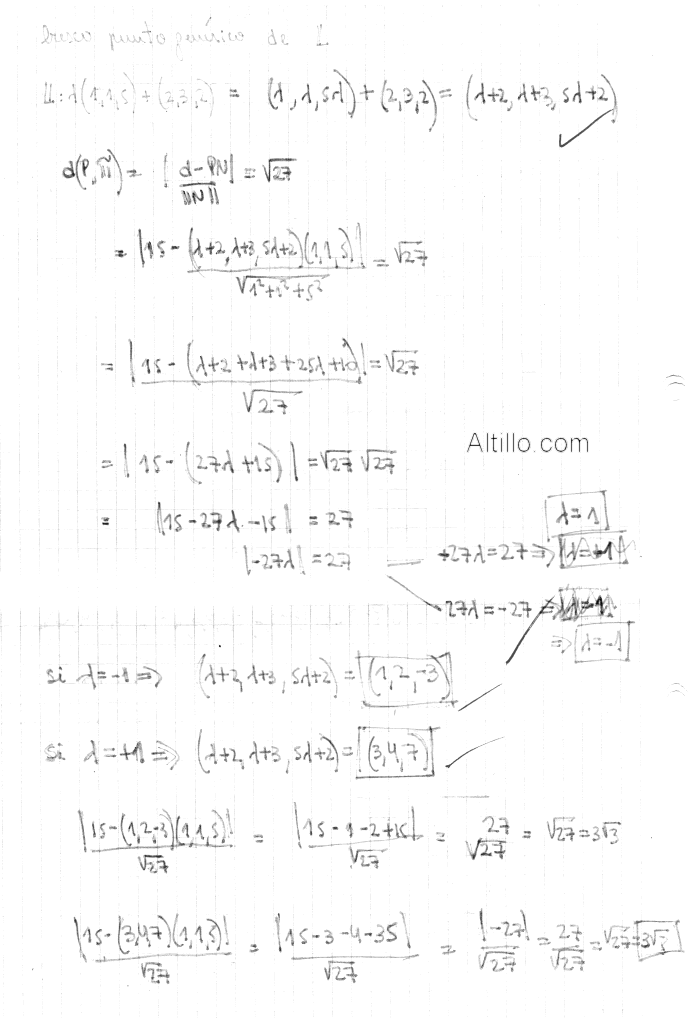 Busco punto genérico de L
L: λ(1,1,5) + (2,3,2) = (λ, λ, 5λ) + (2,3,2) = (λ+2, λ+3, 5λ+2)
d(P, π) = |d - PN| / ||N|| = √27
= |15 - (λ+2, λ+3, 5λ+2)(1,1,5)| / √1²+1²+5² = √27
= |15 - (λ+2+λ+3+25λ+10)| / √27 = √27
Altillo.com
= |15 - (27λ+15)| = √27 √27
= |15 - 27λ - 15| = 27
λ=1
|-27λ| = 27
+27λ = 27 ⇒ λ=+1
27λ = -27 ⇒ λ=-1
⇒ λ=-1
si λ=-1 ⇒ (λ+2, λ+3, 5λ+2) = (1,2,-3)
si λ=+1 ⇒ (λ+2, λ+3, 5λ+2) = (3,4,7)
|15-(1,2,-3)(1,1,5)| / √27 = |15-1-2+15| / √27 = 27 / √27 = √27 = 3√3
|15-(3,4,7)(1,1,5)| / √27 = |15-3-4-35| / √27 = |-27| / √27 = 27 / √27 = √27 = 3√3